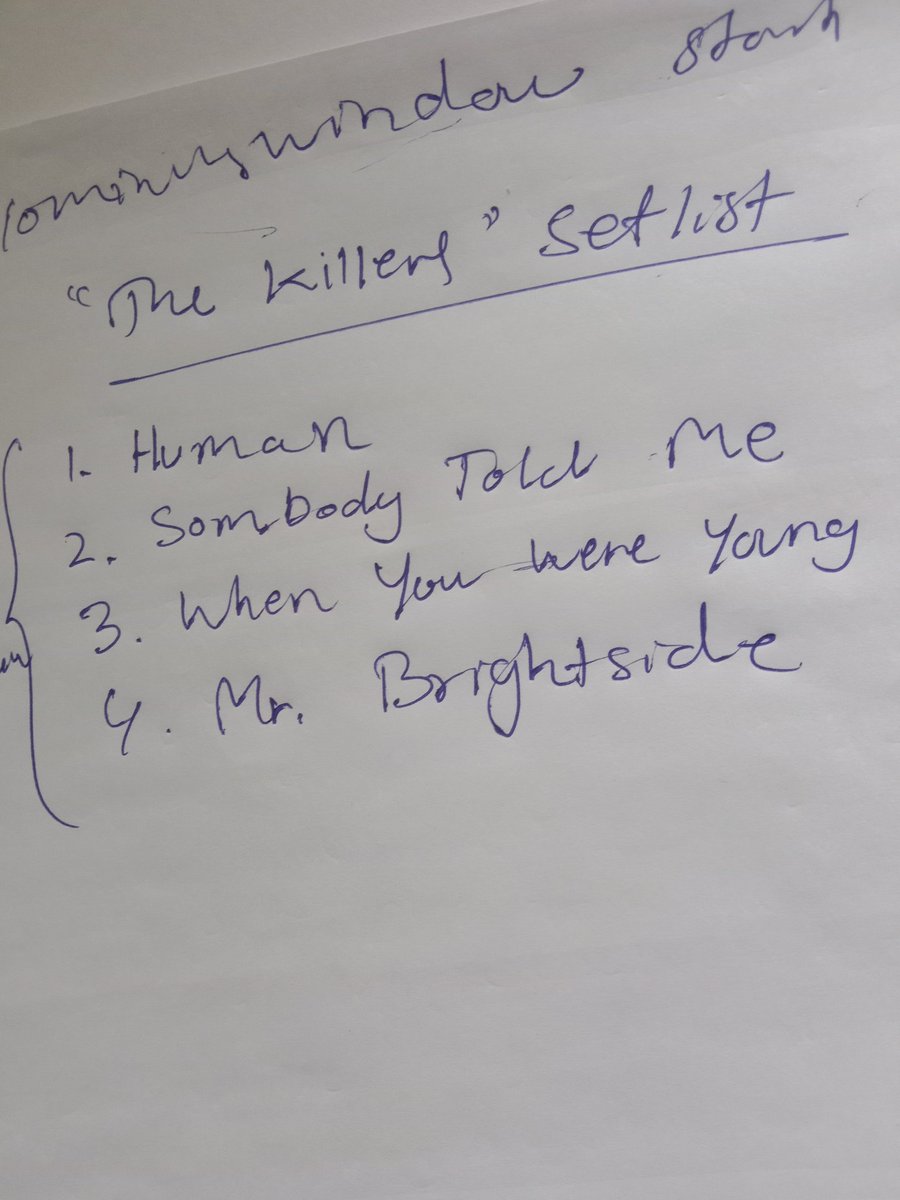 10 mins window start
"The Killers" Setlist
1. Human
2. Sombody Told Me
3. When You were Young
4. Mr. Brightside